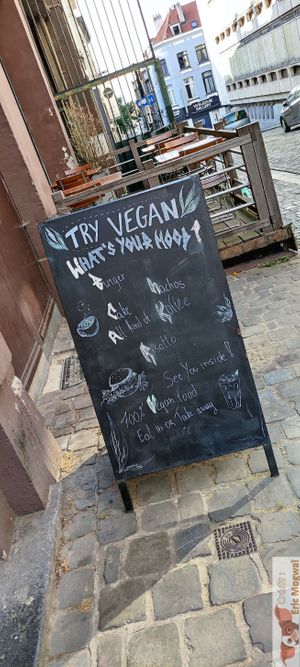 TRY VEGAN
WHAT'S YOUR MOOD?
Burger Nachos
Cake Koffee
All kind of
Risotto
See You inside!
100% Vegan food
Eat in or Take away
Eric Mogwai